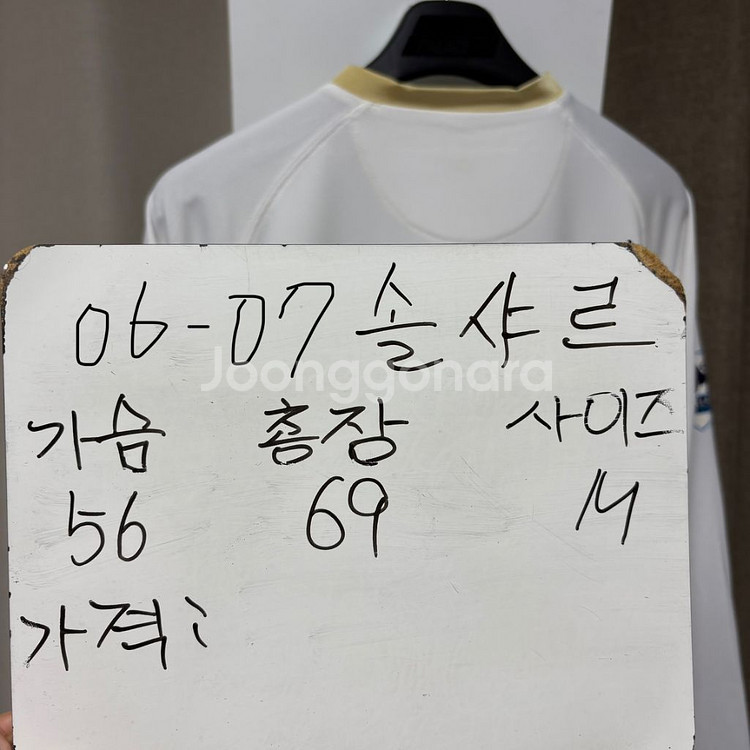 06-07 솔샤르
Joonggonara
가슴 총장 사이즈
56 69 M
가격: